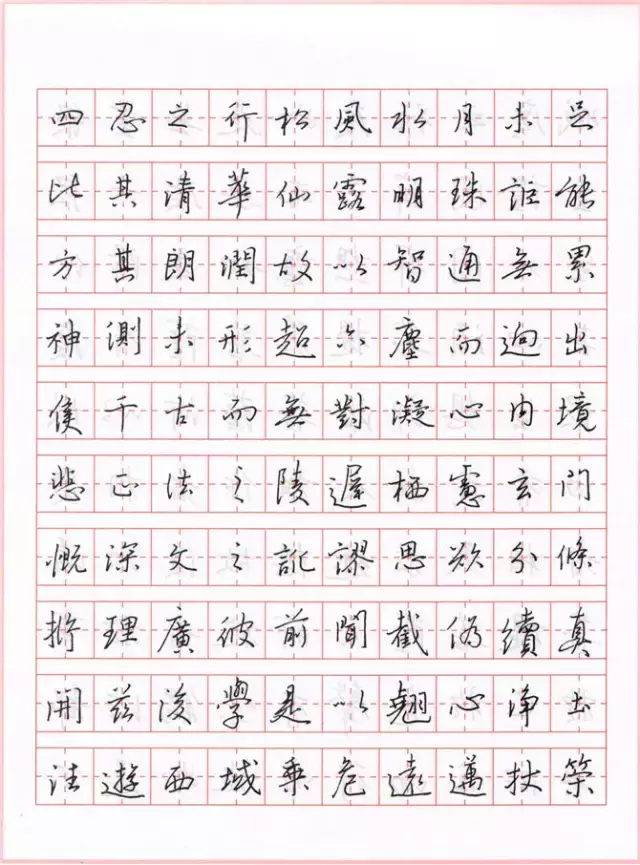 四忍之行松風水月未足
比其清華仙露明珠詎能
方其朗潤故以智通無累
神測未形超六塵而迥出
侯千古而無對凝心內境
悲正法之陵遲栖慮玄門
慨深文之訛謬思欲分條
析理廣彼前聞截偽續真
開茲後學是以翹心淨土
往遊西域乘危遠邁杖策